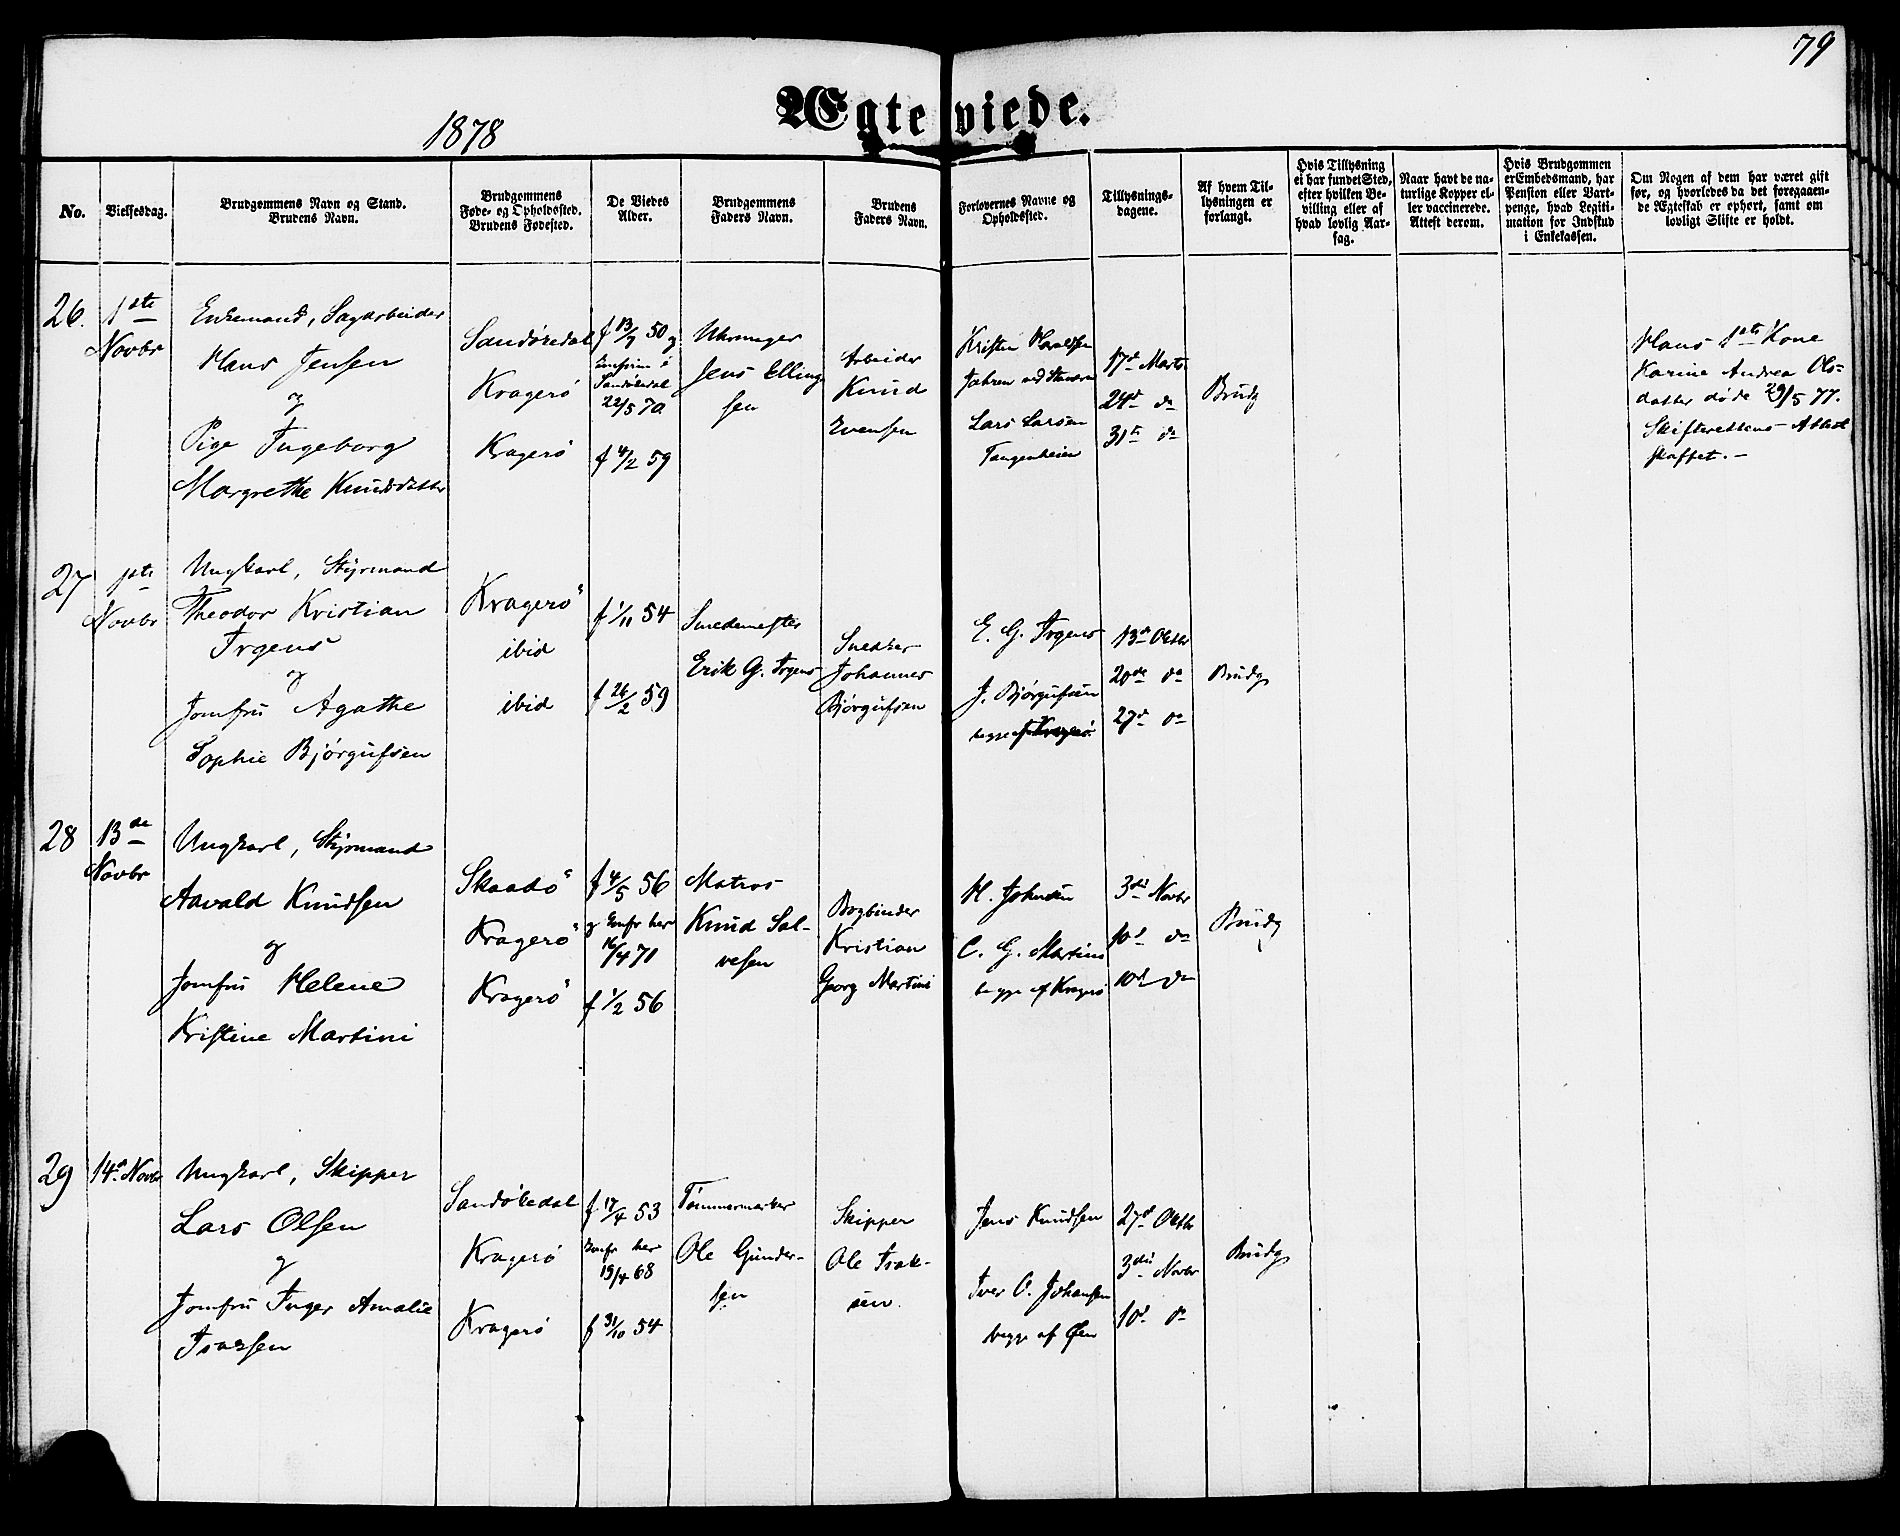 79
1878
Ægteviede.
No.
Vielsesdag.
Brudgommens Navn og Stand.
Brudens Navn.
Brudgommens
Føde- og Opholdssted.
Brudens Fødested.
De Viedes
Alder.
Brudgommens
Faders Navn.
Brudens
Faders Navn.
Forlovernes Navne og
Opholdssted.
Tillysnings-
dagene.
Af hvem Til-
lysningen er
forlangt.
Hvis Tillysning
ei har fundet Sted,
efter hvilken Be-
villing eller af
hvad lovlig Aar-
sag.
Naar havt de na-
turlige Kopper el-
ler vaccinerede.
Attest derom.
Hvis Brudgommen
er Embedsmand, har
Pension eller Vart-
penge, hvad Legiti-
mation for Indskud
i Enkekassen.
Om Nogen af dem har været gift
før, og hvorledes da det foregaaen-
de Ægteskab er ophørt, samt om
lovligt Skifte er holdt.
26.
1ste
Novbr
Enkemand, Sagarbeider
Hans Jensen
og
Pige Ingeborg
Margrethe Knudsdatter
Sandøkedal
Kragerø
Kragerø
f 13/7 50 og
Confirm i
Sandökedal
22/5 70
f 4/2 59
Uhrmager
Jens Elling
sen
Arbeider
Knud
Evensen
Kristen
Lars Larsen
Tangenheien
17de Marts
24de do
31te do
Brudg
Hans 1ste Kone
Karine Andrea Ols-
datter døde 29/5 77.
Skifterettens Attest
skaffet. -
27
1ste
Novbr
Ungkarl, Styrmand
Theodor Kristian
Irgens
og
Jomfru Agathe
Sophie Bjørgufsen
Kragerö
ibid
ibid
f 1/11 54
f 26/2 59
Smedemester
Erik G. Irgens
Snedker
Johannes
Bjørgufsen
E. G. Irgens
J. Bjørgufsen
begge af Kragerø
13de Oktbr
20de do
27de do
Brudg
28
13de
Novbr
Ungkarl, Styrmand
Aavald Knudsen
og
Jomfru Helene
Kristine Martini
Skaadö
Kragerö
Kragerö
f 4/5 56
og Confr her
16/4 71
f 1/2 56
Matros
Knud Sal-
vesen
Bogbinder
Kristian
Georg Martini
H. Johnsen
C. G. Martini
begge af Kragerø
3die Novbr
10de do
10de do
Brudg
29
14de Novbr
Ungkarl, Skipper
Lars Olsen
og
Jomfru Inger Amalie
Isaksen
Sandökedal
Kragerø
Kragerø
f 17/4 53
Confr her
19/4 68
f 31/10 54
Tømmermester
Ole Gunder-
sen
Skipper
Ole Isak-
sen.
Jens Knudsen
Iver O. Johansen
begge af Øen
27de Oktbr
3die Novbr
10de do
Brudg